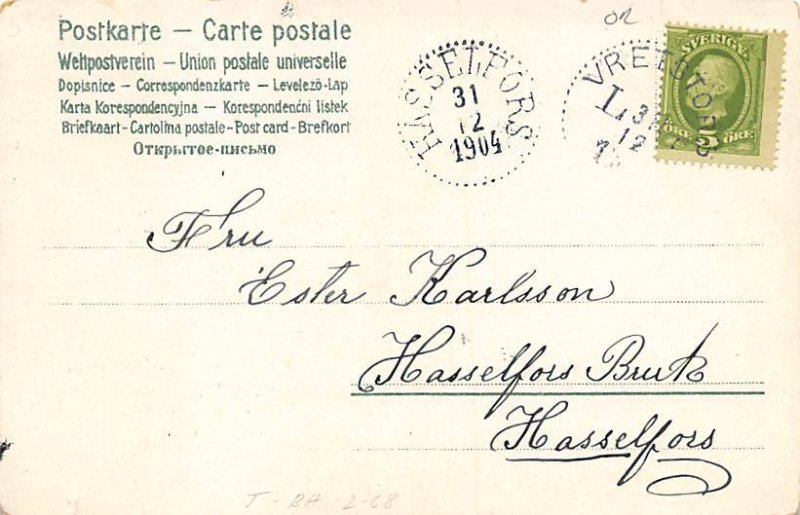 Postkarte — Carte postale
Weltpostverein — Union postale universelle
Dopisnice — Correspondenzkarte — Levelező-Lap
Karta Korespondencyjna — Korespondenční listek
Briefkaart - Cartolina postale - Post card - Brefkort
Открытое-письмо
HASSELFORS
31
12
1904
VRETSTORP
L
31
12
SVERIGE
ÖRE 5 ÖRE
Fru
Ester Karlsson
Hasselfors Bruk
Hasselfors
T - BH - 2-68